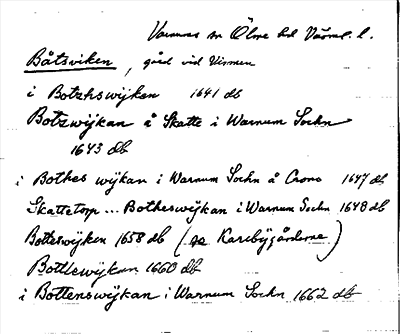 Varnums sn Ölme hd Värml. l.
Båtsviken, gård vid Vismen
i Botzhswijken 1641 db
Botzwijkan å Skatte i Warnum Sochn
1643 db
i Bothes wijkan i Warnum Sochn å Crono 1647 db
Skattetorp ... Botheswijkan i Warnum Sochn 1648 db
Botteswijken 1658 db (se Karebygårderne)
Bottlewijkan 1660 db
i Bottenswijkan i Warnum Sochn 1662 db